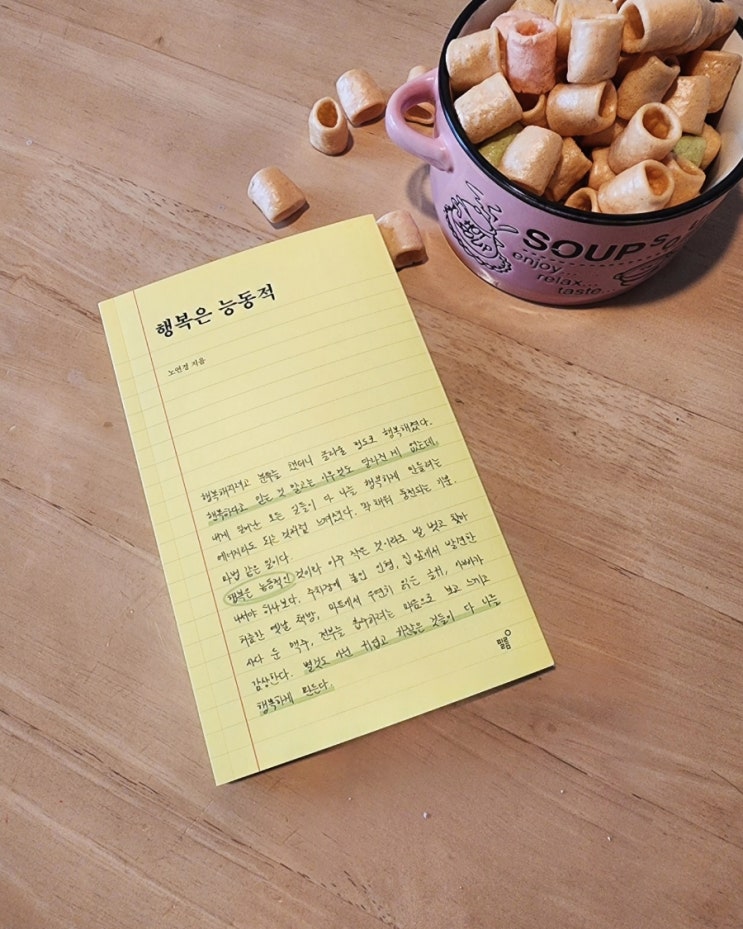 행복은 능동적
노연경 지음
행복해지려고 분투를 했더니 놀라울 정도로 행복해졌다.
행복하다고 믿는 것 말고는 아무것도 달라진 게 없는데.
내게 일어난 모든 일들이 다 나를 행복하게 만들려는
에너지라도 되고 것처럼 느껴졌다. 꽉 채워 충전되는 기분.
마법 같은 일이다.
행복은 능동적인 것이라 아주 작은 것이라도 발 벗고 찾아
나서야 하나보다. 주차장에 붙인 인형, 집 앞에서 발견한
허름한 옛날 책방, 마트에서 우연히 읽은 글귀, 아빠가
사다 둔 맥주, 전부를 흡수하려는 마음으로 보고 느끼고
감상한다. 별것도 아닌 귀엽고 하찮은 것들이 다 나를
행복하게 만든다.
필름
HOT SOUP
SOUP
enjoy...
relax...
taste..
SO